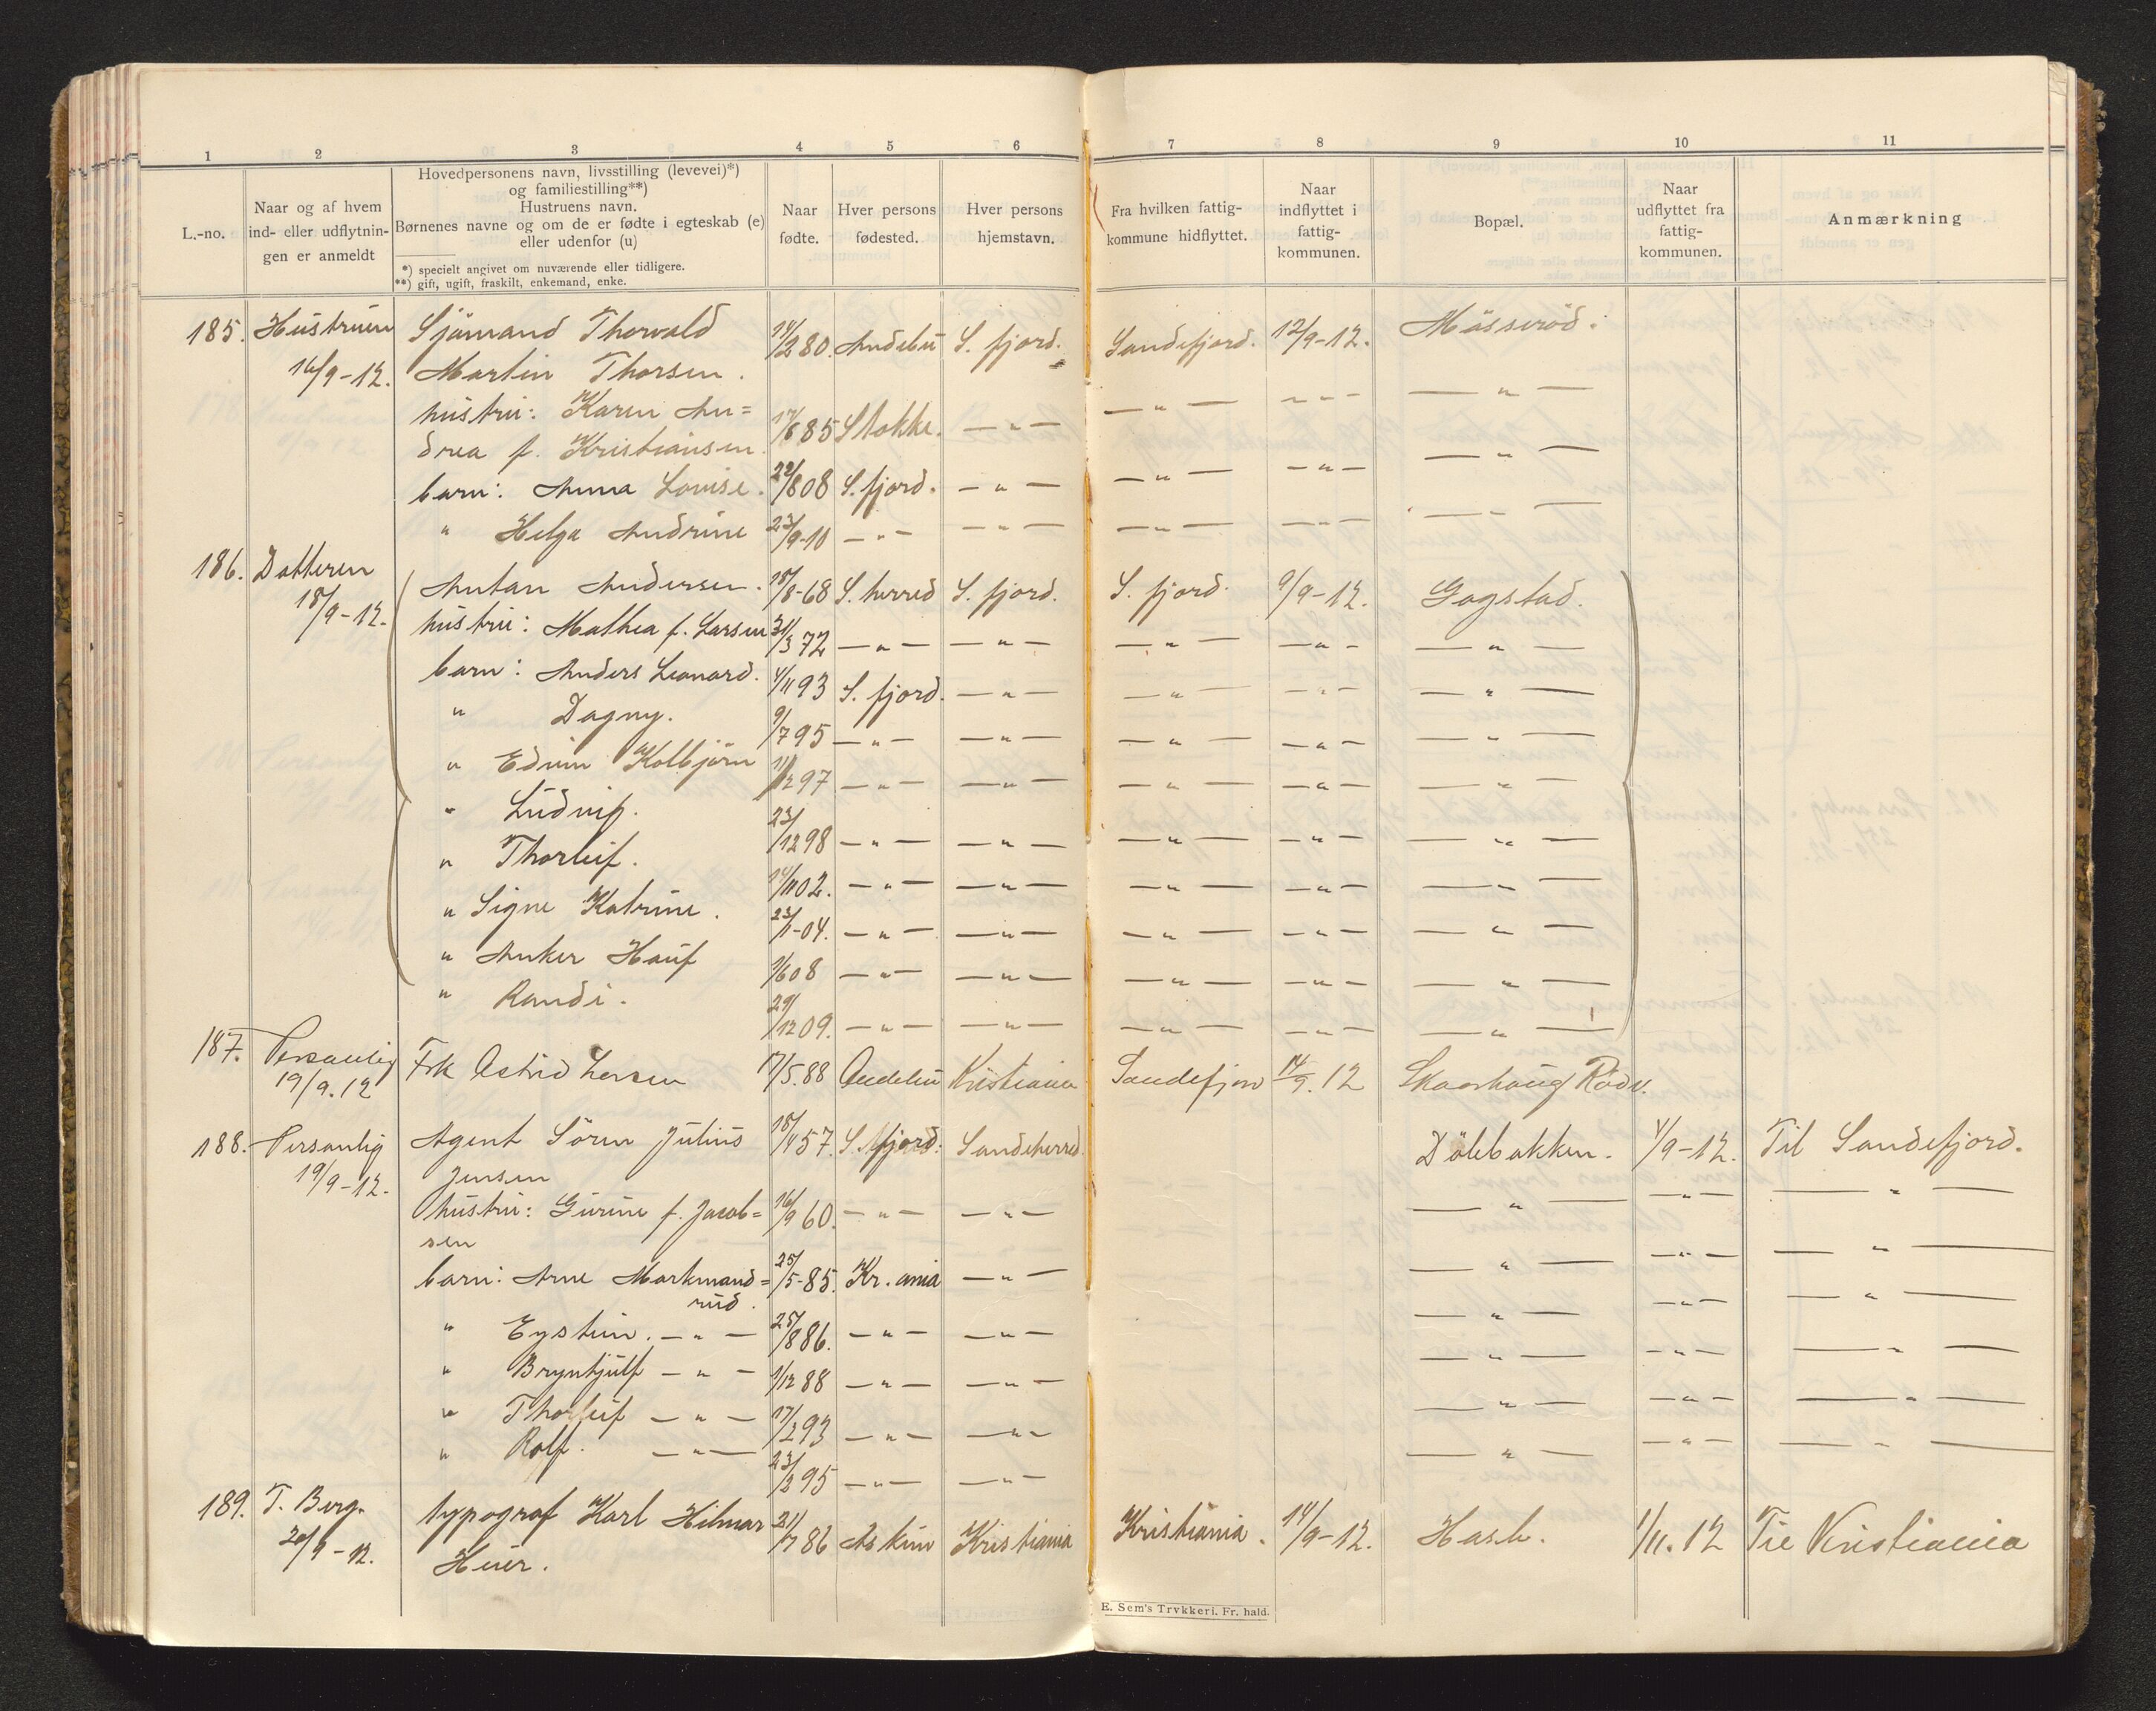 1 2 3 4 5 6 7 8 9 10 11
L.-no.
Naar og af hvem
ind- eller udflytnin-
gen er anmeldt
Hovedpersonens navn, livsstilling (levevei)*)
og familiestilling**)
Hustruens navn.
Børnenes navne og om de er fødte i egteskab (e)
eller udenfor (u)
*) specielt angivet om nuværende eller tidligere.
**) gift, ugift, fraskilt, enkemand, enke.
Naar
fødte.
Hver persons
fødested.
Hver persons
hjemstavn.
Fra hvilken fattig-
kommune hidflyttet.
Naar
indflyttet i
fattig-
kommunen.
Bopæl.
Naar
udflyttet fra
fattig-
kommunen.
Anmærkning
185. Hustruen Sjömand Thorvald 14/2 80. Andebu S. fjord. Sandefjord. 12/9-12. Mösseröd.
16/9-12. Martin Thorsen.
hustru: Karen An= 17/8 85 Stokke. — " — — " — — " — — " —
drea f. Kristiansen
barn: Anna Lovise. 22/8 08 S. fjord. — " — — " — — " — — " —
" Helga Andrine 23/9-10 — " — — " — — " — — " — — " —
186. Datteren Antan Andersen. 18/8-68 S. herred S. fjord. S. fjord. 9/9-12. Gogstad.
18/9-12. hustru: Mathea f. Larsen 31/3 72 — " — — " — — " — — " — — " —
barn: Anders Leonard. 4/11 93 S. fjord. — " — — " — — " — — " —
" Dagny. 9/7 95 — " — — " — — " — — " — — " —
" Edvin Kolbjörn 11/12 97 — " — — " — — " — — " — — " —
" Ludvig. 23/12 98 — " — — " — — " — — " — — " —
" Thorleif. 14/11 02. — " — — " — — " — — " — — " —
" Signe Katrine. 23/1-04. — " — — " — — " — — " — — " —
" Anker Hauf 1/6 08 — " — — " — — " — — " — — " —
" Randi. 29/12 09. — " — — " — — " — — " — — " —
187. Personlig Frk Astrid Larsen 17/5.88 Andebu Kristiania Sandefjord 14/9.12 Skaarhaug Rödv.
19/9.12
188. Personlig Agent Sören Julius 18/4 57. S. fjord. Sandeherred. Dölebakken. 4/9-12. Til Sandefjord.
19/9-12. Jensen
hustru: Gurine f. Jacob= 16/9 60. — " — — " — — " — — " — — " —
sen
barn: Arne Markmand= 25/5-85. Kr.ania — " — — " — — " — — " —
rud.
" Eystein. — " — 25/8 86. — " — — " — — " — — " — — " —
" Bryntjulf — " — 1/12 88 — " — — " — — " — — " — — " —
" Thorleif — " — 17/2 93 — " — — " — — " — — " — — " —
" Rolf. — " — 23/2 95 — " — — " — — " — — " — — " —
189. T. Berg. typograf Karl Hilmar 21/7 86 Askim Kristiania Kristiania. 14/9-12. Hasle. 1/11.12 Til Kristiania
20/9-12. Huer.
E. Sem's Trykkeri. Fr. hald.